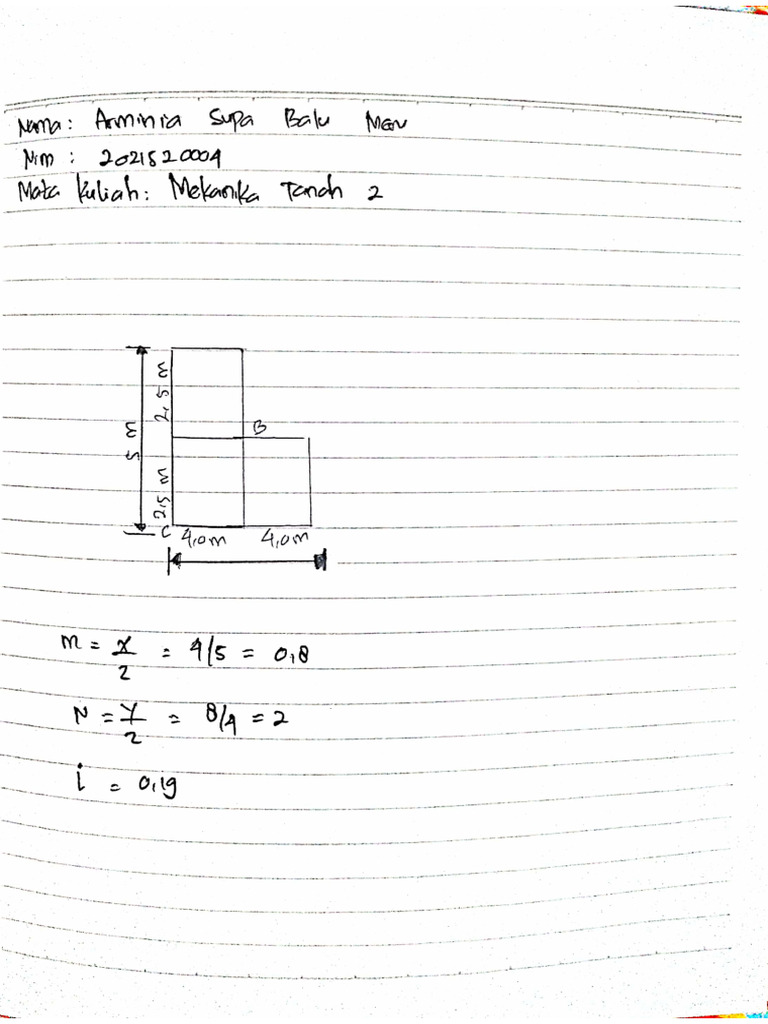 Nama: Arminia Supa Balu Men
Nim : 2021520004
Mata kuliah: Mekanika Tanah 2
2,5 m
5 m
B
2,5 m
C 4,0m 4,0m
m = x/2 = 4/5 = 0,8
N = Y/2 = 8/4 = 2
i = 0,19